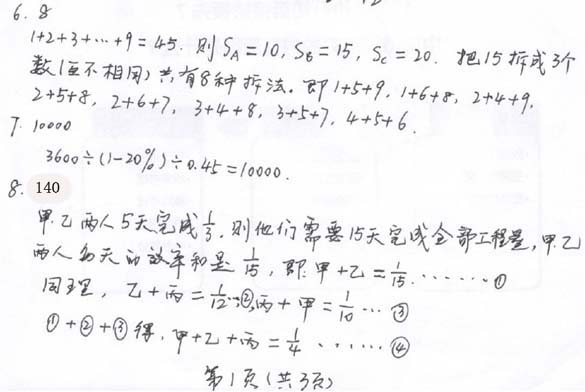 6. 8
1+2+3+…+9=45. 则S_A=10, S_B=15, S_C=20. 把15拆成3个
数(互不相同)共有8种拆法。即1+5+9, 1+6+8, 2+4+9,
2+5+8, 2+6+7, 3+4+8, 3+5+7, 4+5+6.
7. 10000
3600÷(1-20%)÷0.45=10000.
8. 140
甲.乙两人5天完成1/3, 则他们需要15天完成全部工程量, 甲.乙
两人每天的效率和是1/15, 即:甲+乙=1/15.……①
同理, 乙+丙=1/12…②, 丙+甲=1/10…③
①+②+③得, 甲+乙+丙=1/4 ……④
第1页(共3页)